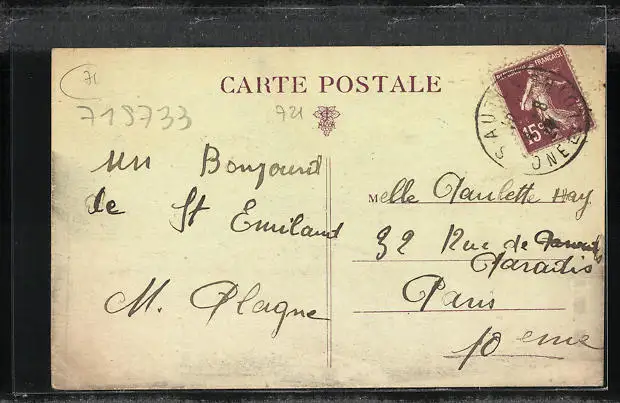 71
CARTE POSTALE
719733
721
Un Bonjourd
de St Emiland
M. Plagne
Melle Paulette Hay
32 Rue de
Paradis
Paris
10 eme
FRANÇAISE
15c
SAU